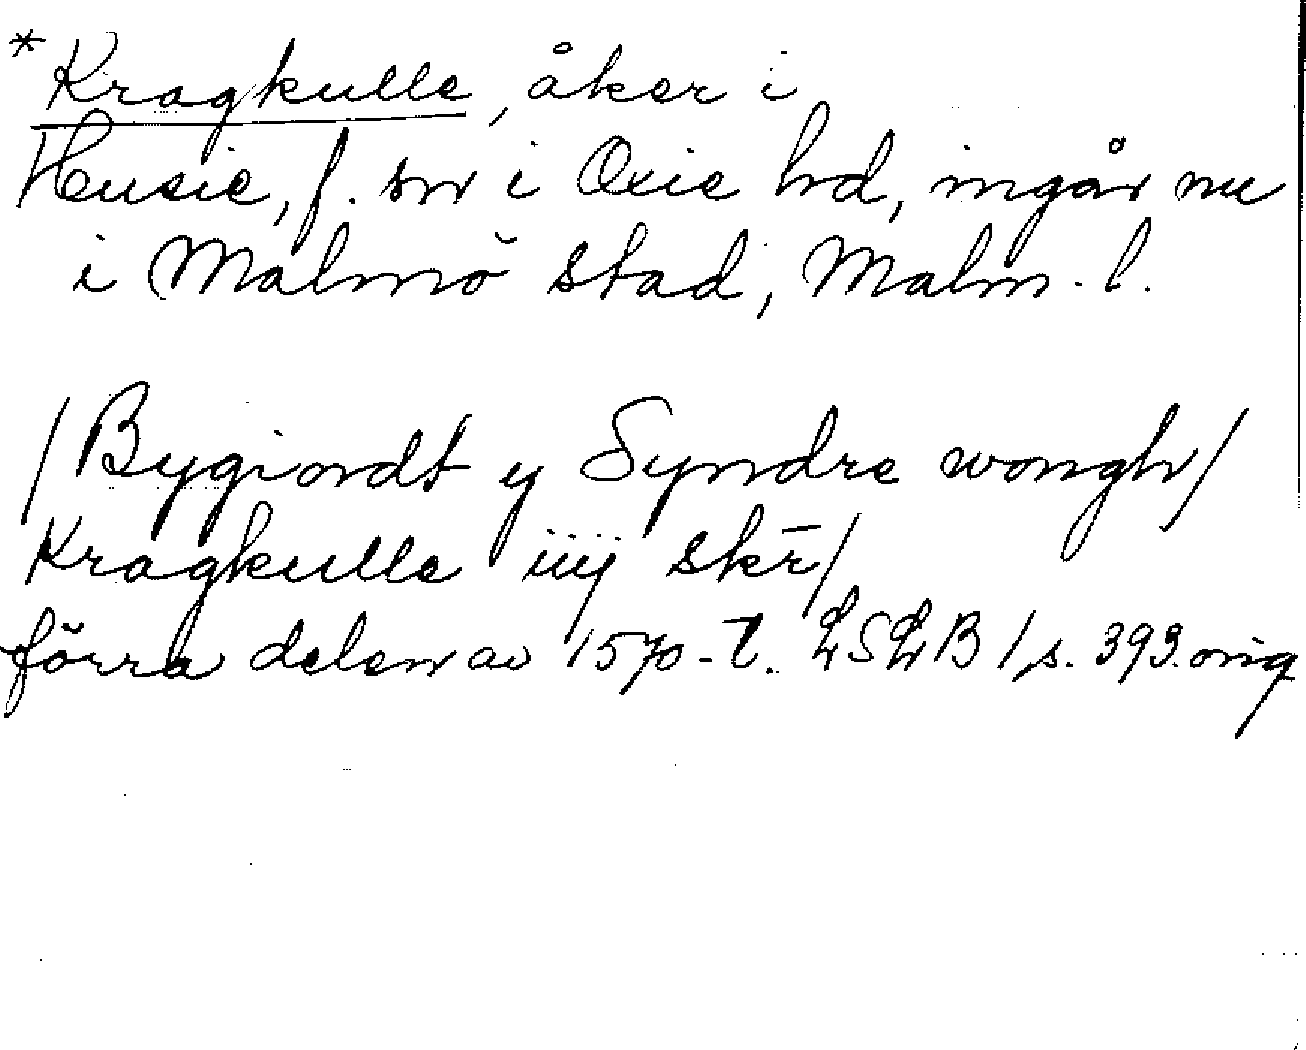 *Kragkulle, åker i
Husie, f. sn i Oxie hd, ingår nu
i Malmö stad, Malm. l.
/Bygiordt y Syndre wongh/
Kragkulle iiij skr̄/
förra delen av 1570-t. LSLB 1 s. 393. orig